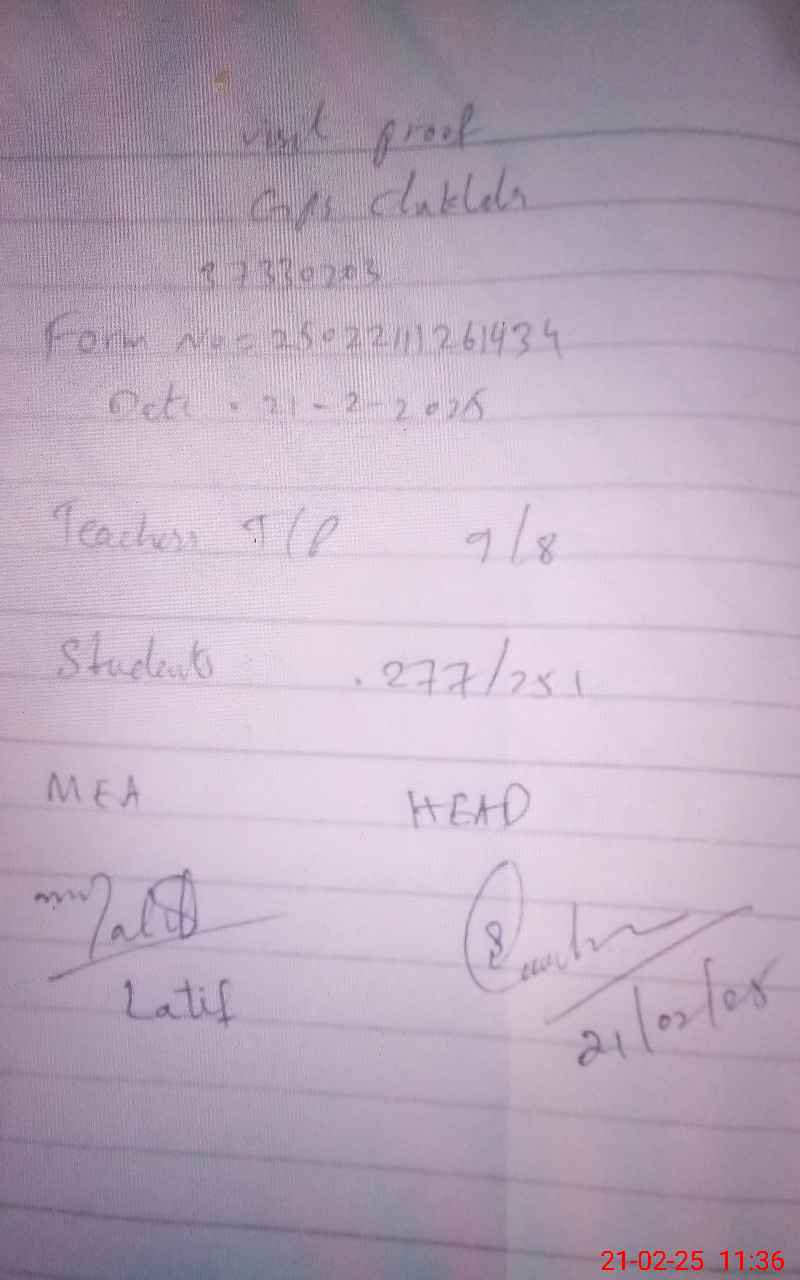 visit proof
37330203
Form No = 25022111261434
Date . 21-2-2025
Teachers T/P 9/8
Students . 277/251
MEA HEAD
Latif
21/02/25
21-02-25 11:36